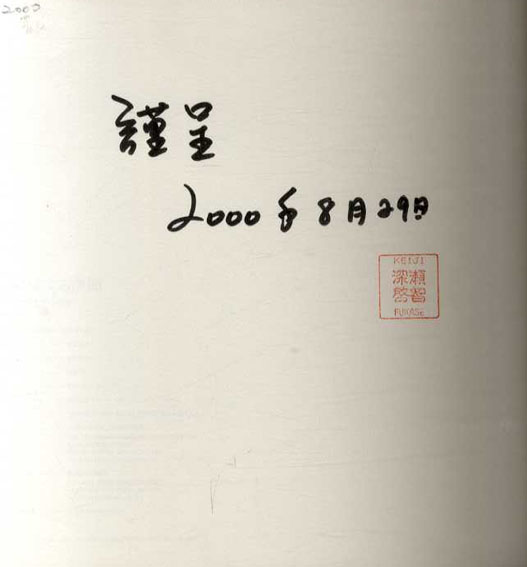 2000
謹呈
2000年8月29日
KEIJI
深瀬
啓智
FUKASE